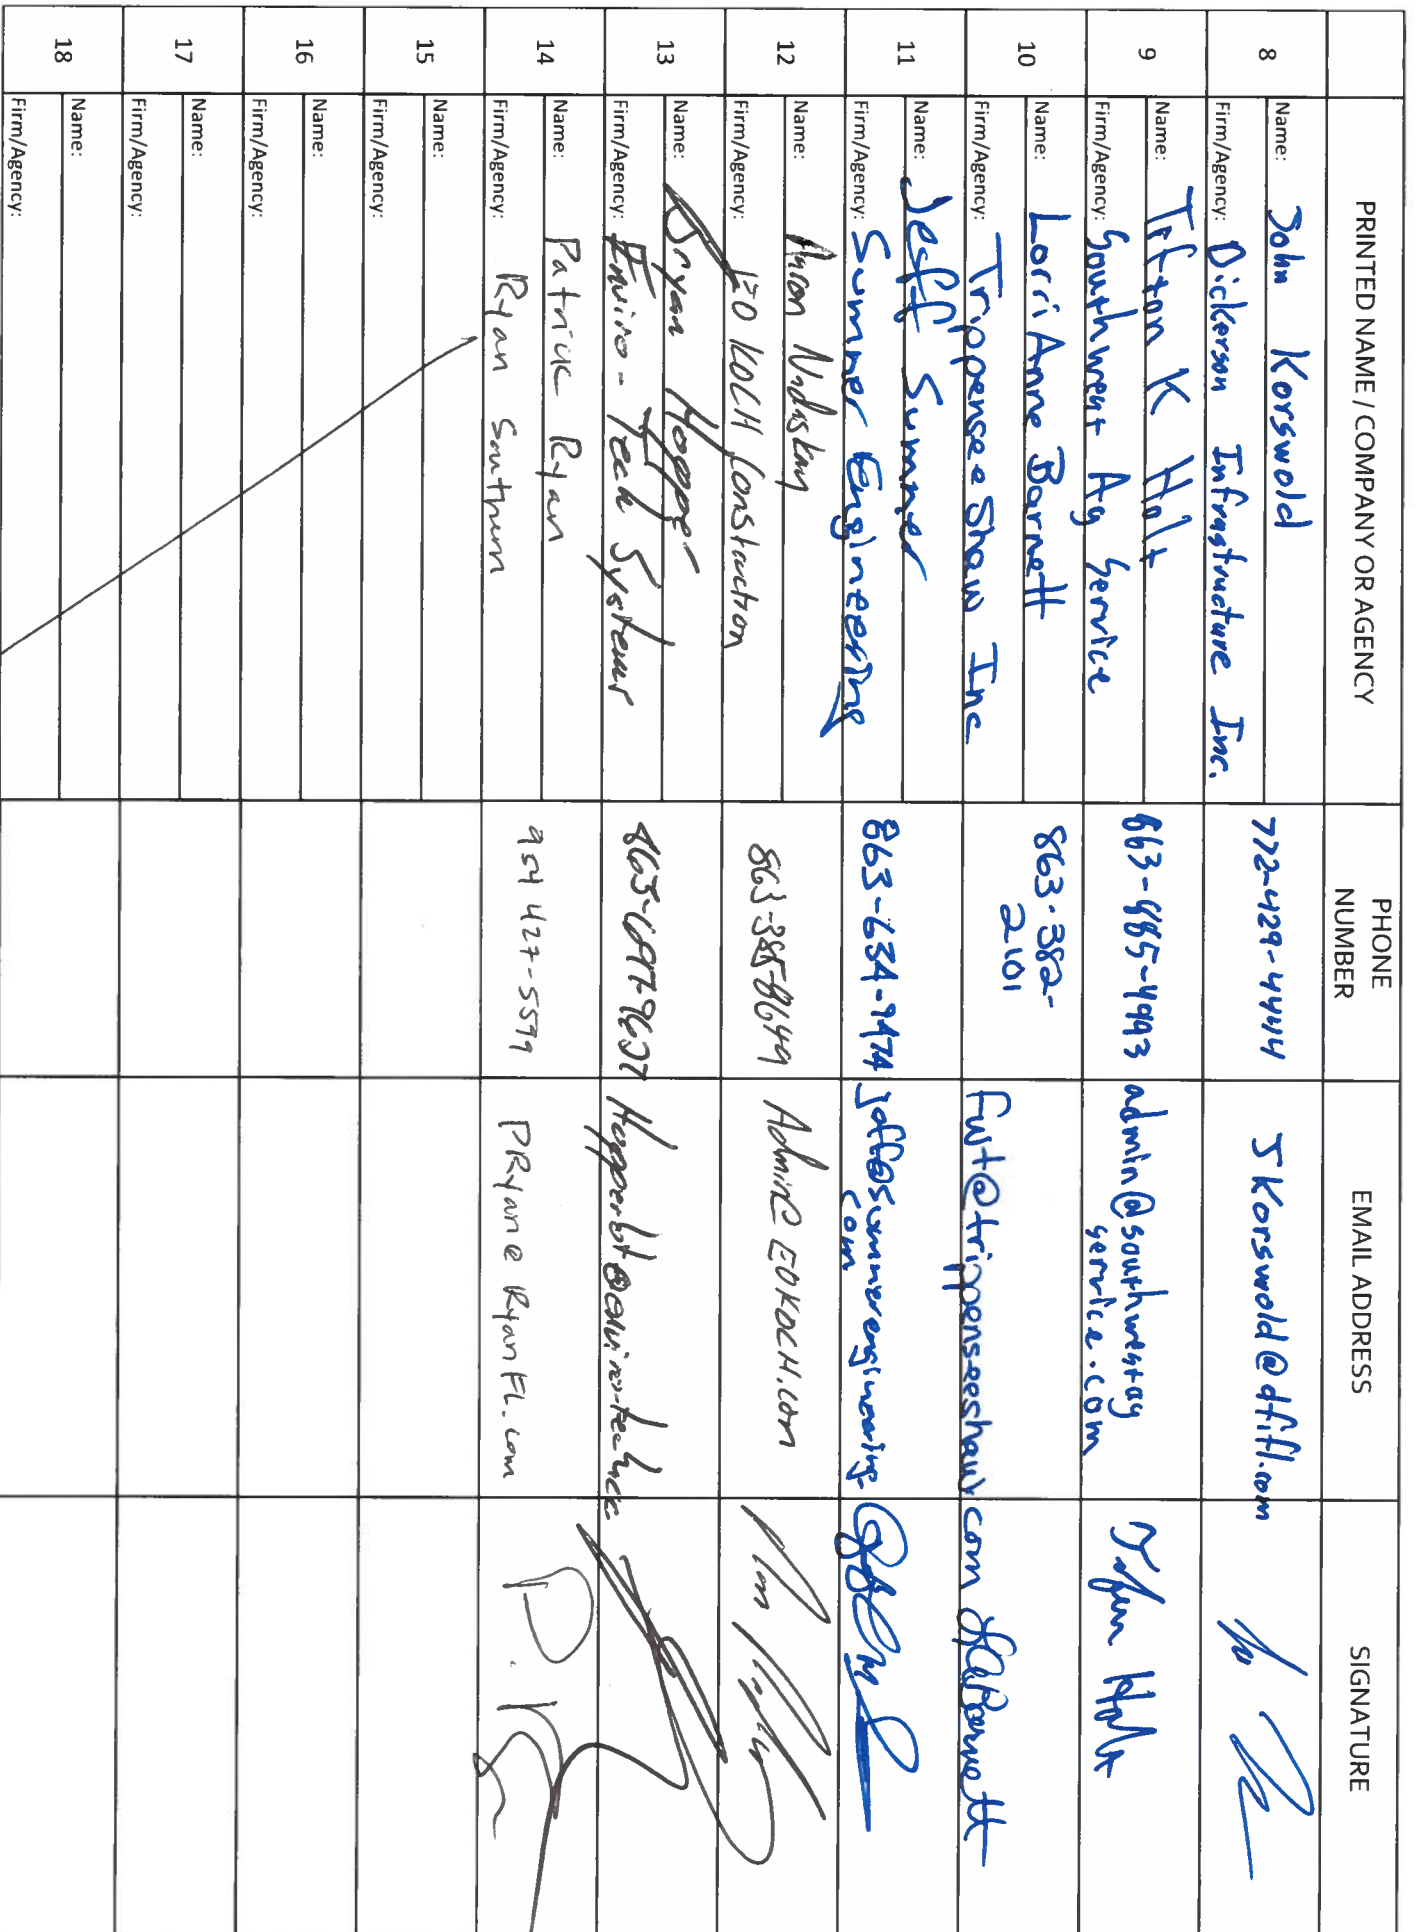 PRINTED NAME / COMPANY OR AGENCY
PHONE
NUMBER
EMAIL ADDRESS
SIGNATURE
8
Name: John Korswold
Firm/Agency: Dickerson Infrastructure Inc.
772-429-4444
JKorswold@dfifl.com
9
Name: Tifton K Holt
Firm/Agency: Southwest Ag Service
863-885-4993
admin@southwestag
service.com
Holt
10
Name: Lorri Anne Barnett
Firm/Agency: Trippensee Shaw Inc
863-382-
2101
fwt@trippenseeshaw.com
Barnett
11
Name: Jeff Sumner
Firm/Agency: Sumner Engineering
863-634-9474
jeff@sumnerengineering.
com
12
Name:
Firm/Agency: EO KOCH Construction
863-385-8649
Admin@EOKOCH.com
13
Name: Bryan Hopper
Firm/Agency: Enviro-Tech Systems
14
Name: Patrick Ryan
Firm/Agency: Ryan Southern
954 427-5599
PRyan@RyanFL.com
P.
15
Name:
Firm/Agency:
16
Name:
Firm/Agency:
17
Name:
Firm/Agency:
18
Name:
Firm/Agency: